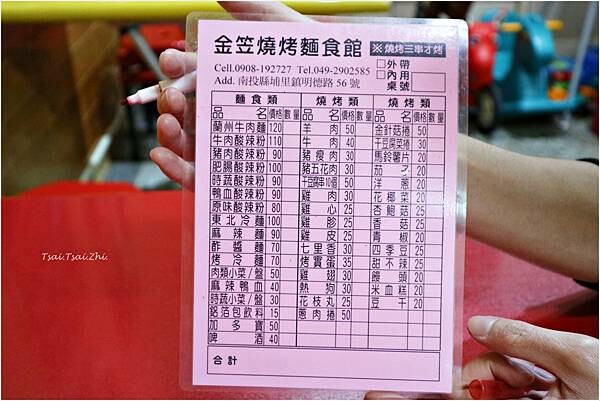 金笠燒烤麵食館
※燒烤三串才烤
Cell.0908-192727 Tel.049-2902585
Add. 南投縣埔里鎮明德路 56 號
□外帶
□內用
桌號
麵食類
品名 價格 數量
蘭州牛肉麵 120
牛肉酸辣粉 110
豬肉酸辣粉 90
肥腸酸辣粉 100
時蔬酸辣粉 90
鴨血酸辣粉 90
原味酸辣粉 80
東北冷麵 100
麻辣麵 90
酢醬麵 70
烤冷麵 70
肉類小菜/盤 50
麻辣鴨血 40
時蔬小菜/盤 30
鋁箔包飲料 15
加多寶 50
啤酒 40
燒烤類
品名 價格 數量
羊肉 50
牛肉 40
豬瘦肉 30
豬五花肉 30
干豆腐串10個 50
雞肉 30
雞心 25
雞胗 25
雞皮 25
七里香 30
烤寶蛋 35
雞翅 30
熱狗 30
花枝丸 25
蔥肉捲 50
燒烤類
品名 價格 數量
金針菇捲 50
干豆腐菜捲 30
馬鈴薯片 20
茄子 20
洋蔥 20
花椰菜 20
杏鮑菇 25
香菇 25
青椒 20
四季豆 25
甜不辣 25
饅頭 20
米血糕 20
豆干 20
合計
Tsai.Tsai.Zhi.